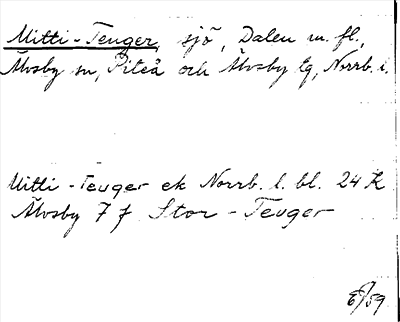 Mitti-Teuger, sjö, Dalen m. fl.,
Älvsby sn, Piteå och Älvsby tg, Norrb. l.
Mitti-Teuger ek Norrb. l. bl. 24 K
Älvsby 7 f Stor-Teuger
/59